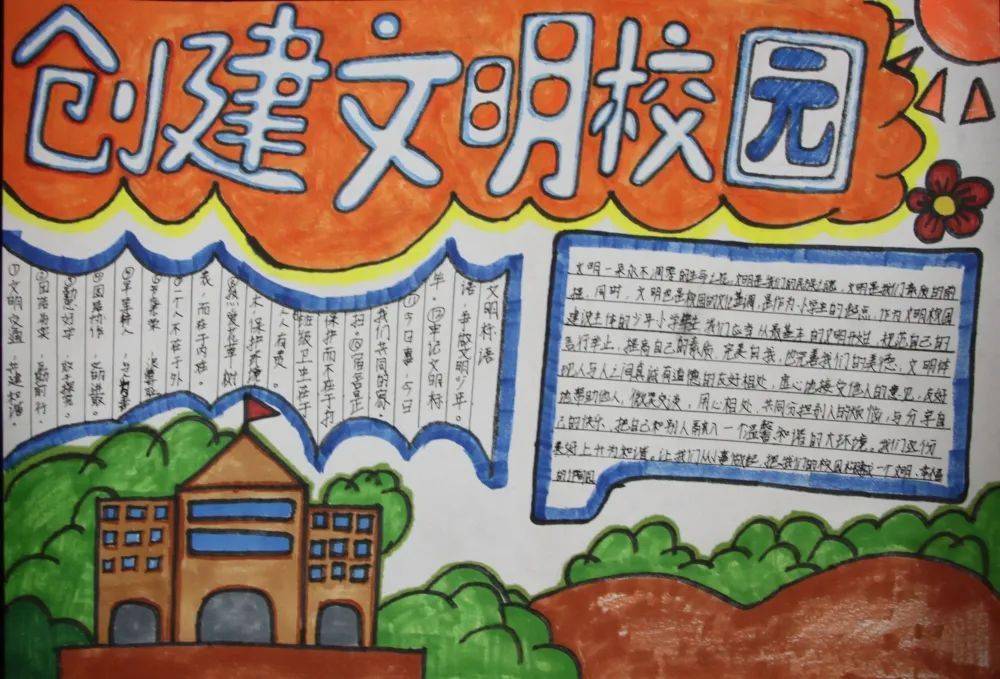 创建文明校园
文明标语
①文明交通
②团结
一个人不在于外
表，而在于内在。
热爱花草·树
木·保护环境
人人有责。
班级卫生在于
保护而不在于打
扫·⑩
我们共同的家
⑪今日事·今日
毕。⑫牢记文明标
语·争做文明少年。
文明一朵永不凋零的生命之花，文明是我们的民族之魂，文明是我们素质的前
提，同时，文明也是校园的文化基调，是作为小学生的起点，作为文明校园
建设主体的少年小学生，我们应当从最基本的文明开始，规范自己的
言行举止，提高自己的素质，完美自我，也完善我们的美德。文明体
现人与人之间真诚有道德的友好相处，虚心地接受他人的意见，友好
地帮助他人，微笑交流，用心相处，共同分担别人的烦恼，与分享自
己的快乐，把自己和别人融入一个温馨和谐的大环境。我们这份
美好上升为和谐。让我们从小事做起，把我们的校园建成一个文明、幸福
的校园